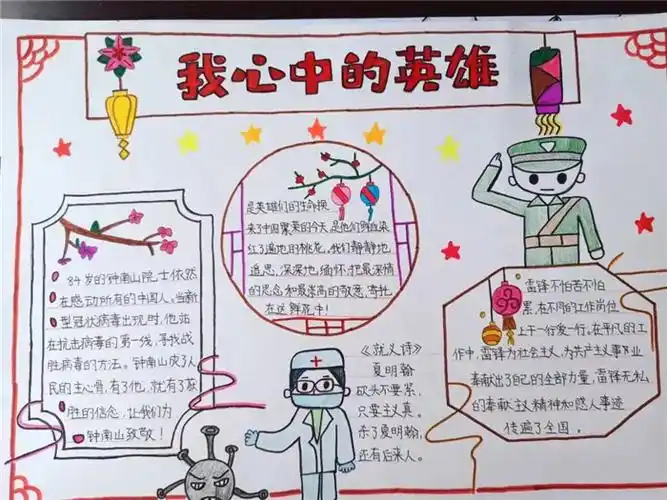 我心中的英雄
84岁的钟南山院士依然
在感动所有的中国人。当新
型冠状病毒出现时,他站
在抗击病毒的第一线,寻找战
胜病毒的方法。钟南山成了人
民的主心骨,有了他,就有了获
胜的信念,让我们为
钟南山致敬!
是英雄们的生命换
来了中国繁荣的今天,是他们鲜血染
红了遍地的桃花,我们静静地
追思,深深地缅怀,把最深情
的思念和最崇高的敬意,寄托
在这鲜花中!
《就义诗》
夏明翰
砍头不要紧,
只要主义真。
杀了夏明翰,
还有后来人。
雷锋不怕苦不怕
累,在不同的工作岗位
上干一行爱一行,在平凡的工
作中,雷锋为社会主义,为共产主义事业
奉献出了自己的全部力量,雷锋无私
的奉献主义精神和感人事迹
传遍了全国。